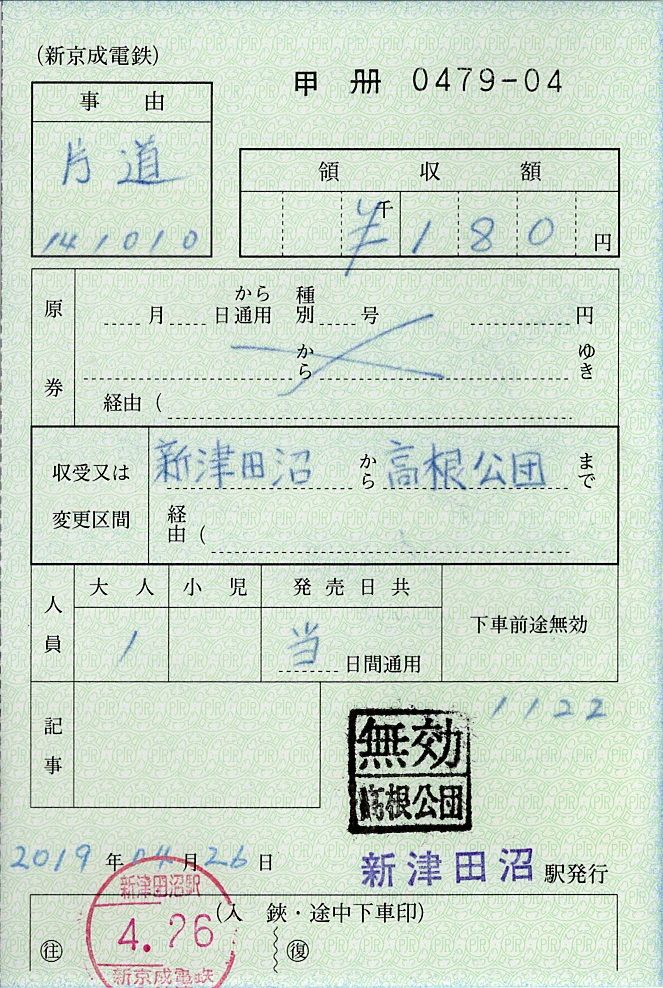 (新京成電鉄)
甲 册 0479-04
事由
片道
141010
領収額
千
¥180円
原券
月 日から通用 種別 号 円
から ゆき
経由(
収受又は変更区間
新津田沼から高根公団まで
経由(
人員
大人 小児 発売日共
1 当日間通用
下車前途無効
1122
記事
無効
高根公団
2019年04月26日
新津田沼駅発行
(入鋏・途中下車印)
新津田沼駅
4.26
新京成電鉄
往 復